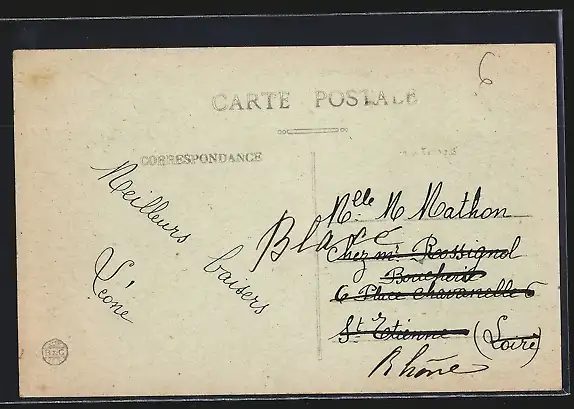 6
CARTE POSTALE
CORRESPONDANCE
Meilleurs baisers
Léone
Mlle M Mathon
Blacé
Chez mr Rossignol
Boucherie
6 Place Chavanelle 6
St Etienne (Loire)
Rhône
B&G